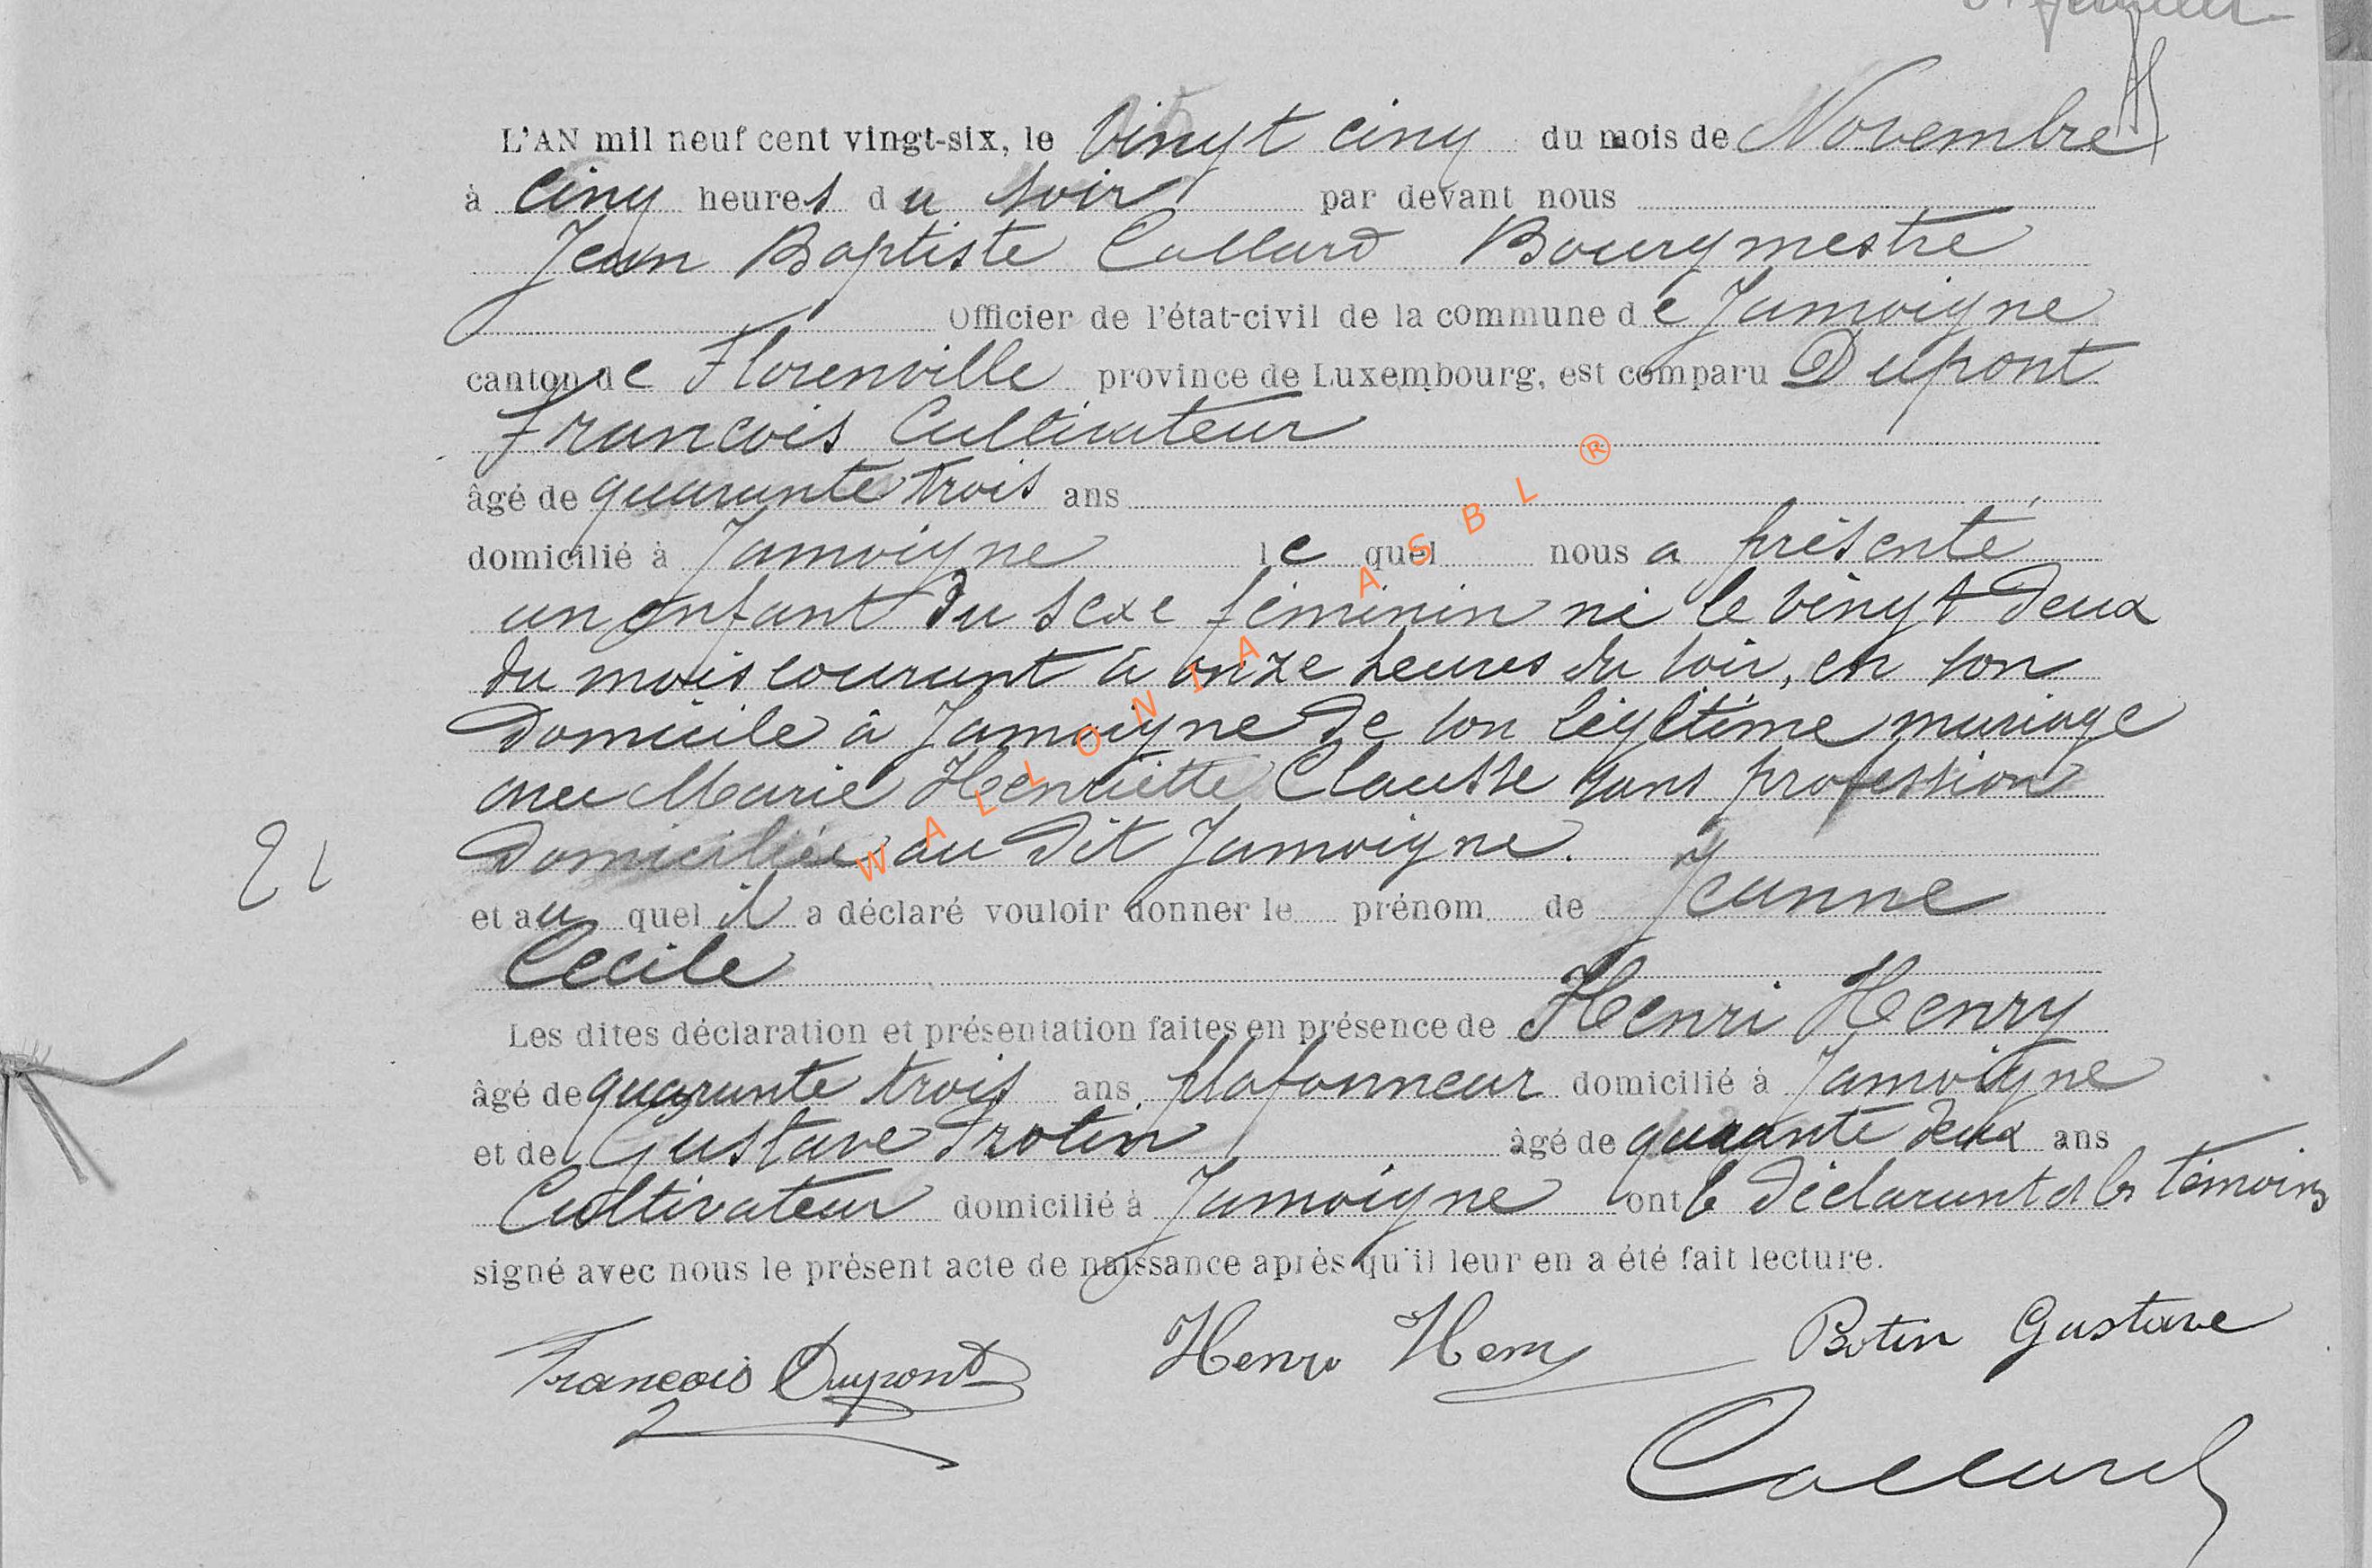 L'AN mil neuf cent vingt-six, le vingt cinq du mois de Novembre
à cinq heures du soir par devant nous
Jean Baptiste Collard Bourgmestre
Officier de l'état-civil de la commune de Jamoigne
canton de Florenville province de Luxembourg, est comparu Dupont
Francois Cultivateur
âgé de quarante trois ans
domicilié à Jamoigne lequel nous a présenté
un enfant du sexe féminin né le vingt deux
du mois courant à onze heures du soir, en son
domicile à Jamoigne de son légitime mariage
avec Marie Henriette Clausse sans profession
domiciliée au dit Jamoigne.
21
et auquel il a déclaré vouloir donner le prénom de Jeanne
Cecile
Les dites déclaration et présentation faites en présence de Henri Henry
âgé de quarante trois ans plafonneur domicilié à Jamoigne
et de Gustave âgé de quarante deux ans
Cultivateur domicilié à Jamoigne ont le déclarant et les témoins
signé avec nous le présent acte de naissance après qu'il leur en a été fait lecture.
Francois Dupont Henri Henry Gustave
Collard
WALLONIA ASBL ®